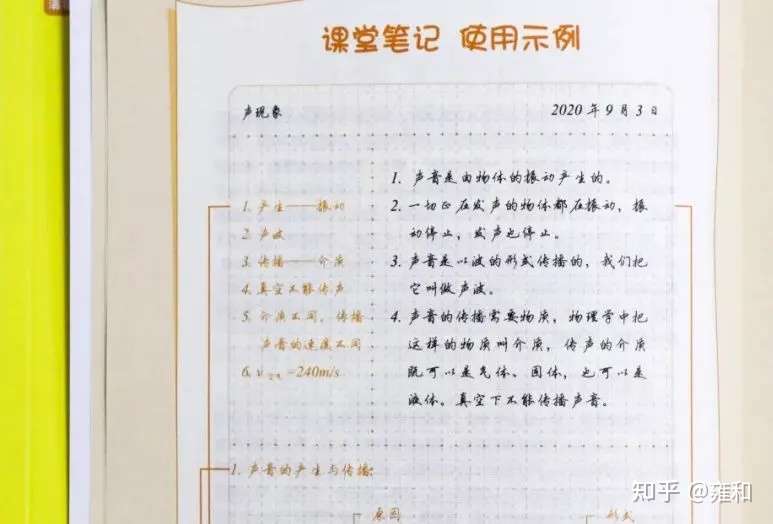 课堂笔记 使用示例
声现象
2020 年 9 月 3 日
1. 产生——振动
2. 声波
3. 传播——介质
4. 真空不能传声
5. 介质不同，传播
声音的速度不同
6. v空气=240m/s
1. 声音是由物体的振动产生的。
2. 一切正在发声的物体都在振动，振
动停止，发声也停止。
3. 声音是以波的形式传播的，我们把
它叫做声波。
4. 声音的传播需要物质，物理学中把
这样的物质叫介质，传声的介质
既可以是气体、固体，也可以是
液体。真空下不能传播声音。
1. 声音的产生与传播：
原因
形式
知乎 @雍和